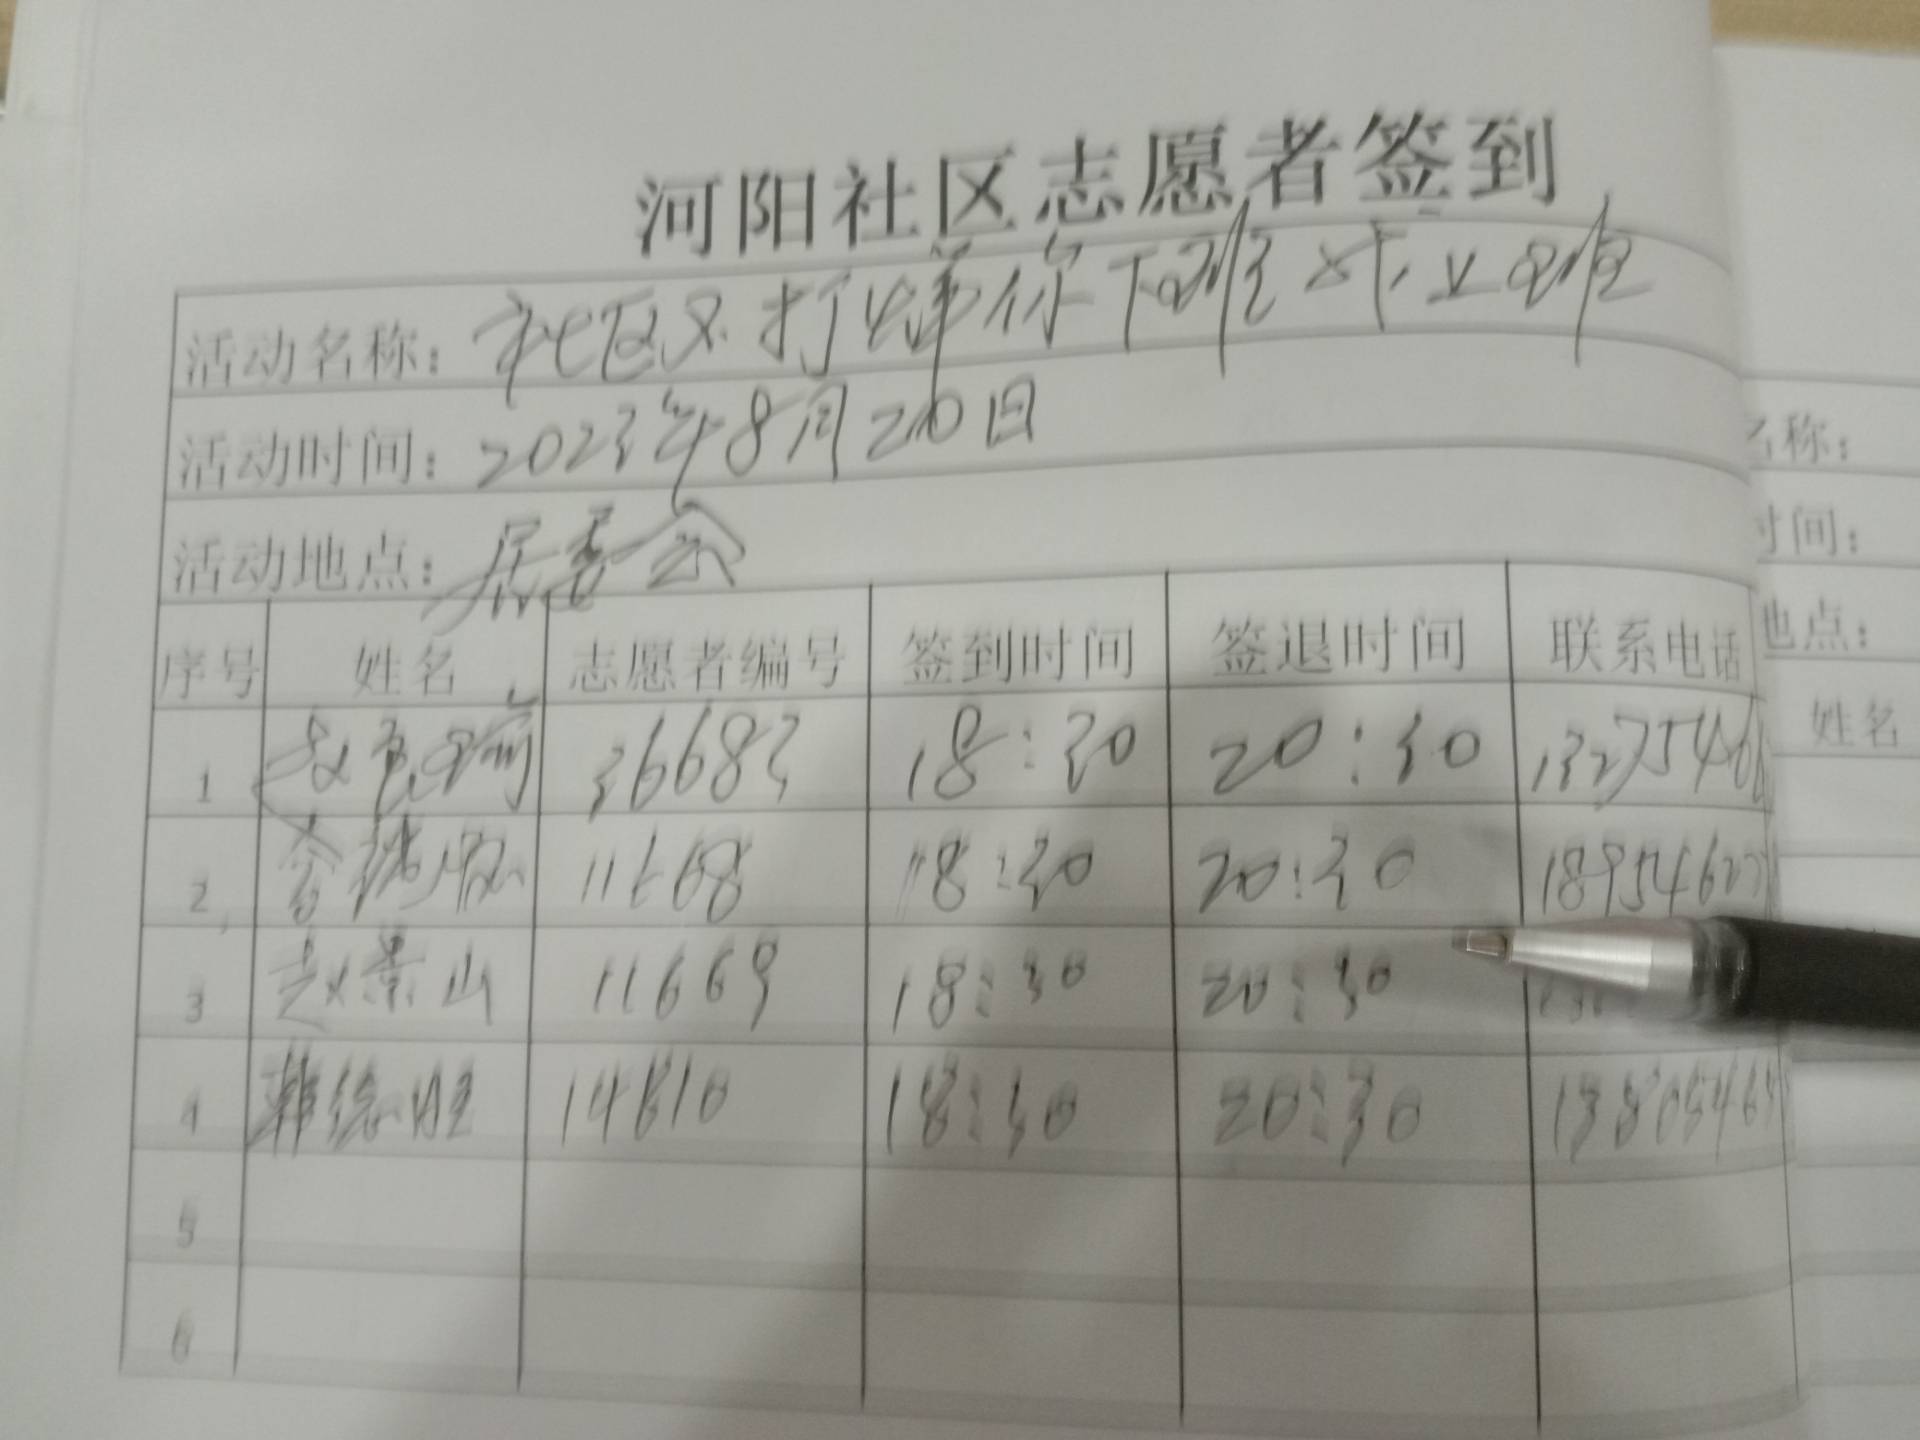 河阳社区志愿者签到
活动名称：社区不打烊你下班我上班
活动时间：2023年8月20日
活动地点：居委会
序号 姓名 志愿者编号 签到时间 签退时间 联系电话
1 36683 18:30 20:30 13275466
2 11668 18:30 20:30 189546277
3 赵景山 11669 18:30 20:30
4 韩德旺 14810 18:30 20:30 13805465
5
6
名称：
时间：
地点：
姓名